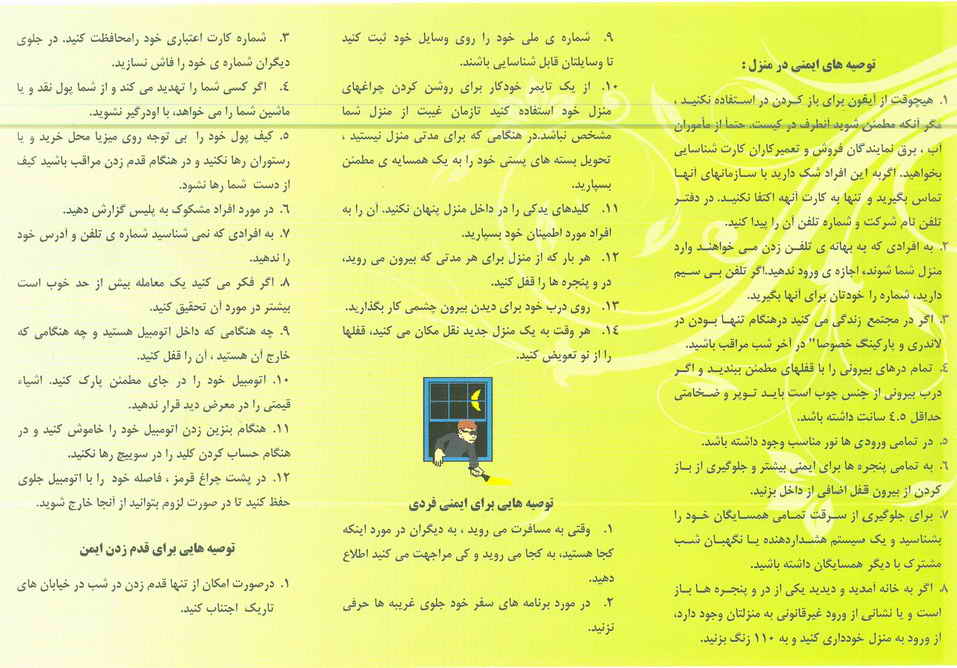 توصیه های ایمنی در منزل :
۱. هیچوقت از آیفون برای باز کردن در استفاده نکنید ،
مگر آنکه مطمئن شوید آنطرف در کیست. حتماً از مأموران
آب ، برق نمایندگان فروش و تعمیرکاران کارت شناسایی
بخواهید. اگربه این افراد شک دارید با سازمانهای آنها
تماس بگیرید و تنها به کارت آنهه اکتفا نکنید. در دفتر
تلفن نام شرکت و شماره تلفن آن را پیدا کنید.
۲. به افرادی که به بهانه ی تلفن زدن می خواهند وارد
منزل شما شوند، اجازه ی ورود ندهید.اگر تلفن بی سیم
دارید، شماره را خودتان برای آنها بگیرید.
۳. اگر در مجتمع زندگی می کنید درهنگام تنها بودن در
لاندری و پارکینگ خصوصا" در آخر شب مراقب باشید.
٤. تمام درهای بیرونی را با قفلهای مطمئن ببندید و اگر
درب بیرونی از جنس چوب است باید توپر و ضخامتی
حداقل ٤.٥ سانت داشته باشد.
٥. در تمامی ورودی ها نور مناسب وجود داشته باشد.
٦. به تمامی پنجره ها برای ایمنی بیشتر و جلوگیری از باز
کردن از بیرون قفل اضافی از داخل بزنید.
۷. برای جلوگیری از سرقت تمامی همسایگان خود را
بشناسید و یک سیستم هشداردهنده یا نگهبان شب
مشترک با دیگر همسایگان داشته باشید.
۸. اگر به خانه آمدید و دیدید یکی از در و پنجره ها باز
است و یا نشانی از ورود غیرقانونی به منزلتان وجود دارد،
از ورود به منزل خودداری کنید و به ۱۱۰ زنگ بزنید.
۹. شماره ی ملی خود را روی وسایل خود ثبت کنید
تا وسایلتان قابل شناسایی باشند.
۱۰. از یک تایمر خودکار برای روشن کردن چراغهای
منزل خود استفاده کنید تازمان غیبت از منزل شما
مشخص نباشد.در هنگامی که برای مدتی منزل نیستید ،
تحویل بسته های پستی خود را به یک همسایه ی مطمئن
بسپارید.
۱۱. کلیدهای یدکی را در داخل منزل پنهان نکنید. آن را به
افراد مورد اطمینان خود بسپارید.
۱۲. هر بار که از منزل برای هر مدتی که بیرون می روید،
در و پنجره ها را قفل کنید.
۱۳. روی درب خود برای دیدن بیرون چشمی کار بگذارید.
۱٤. هر وقت به یک منزل جدید نقل مکان می کنید، قفلها
را از نو تعویض کنید.
توصیه هایی برای ایمنی فردی
۱. وقتی به مسافرت می روید ، به دیگران در مورد اینکه
کجا هستید، به کجا می روید و کی مراجهت می کنید اطلاع
دهید.
۲. در مورد برنامه های سفر خود جلوی غریبه ها حرفی
نزنید.
۳. شماره کارت اعتباری خود رامحافظت کنید. در جلوی
دیگران شماره ی خود را فاش نسازید.
٤. اگر کسی شما را تهدید می کند و از شما پول نقد و یا
ماشین شما را می خواهد، با اودرگیر نشوید.
٥. کیف پول خود را بی توجه روی میزیا محل خرید و یا
رستوران رها نکنید و در هنگام قدم زدن مراقب باشید کیف
از دست شما رها نشود.
٦. در مورد افراد مشکوک به پلیس گزارش دهید.
۷. به افرادی که نمی شناسید شماره ی تلفن و آدرس خود
را ندهید.
۸. اگر فکر می کنید یک معامله بیش از حد خوب است
بیشتر در مورد آن تحقیق کنید.
۹. چه هنگامی که داخل اتومبیل هستید و چه هنگامی که
خارج آن هستید ، آن را قفل کنید.
۱۰. اتومبیل خود را در جای مطمئن پارک کنید. اشیاء
قیمتی را در معرض دید قرار ندهید.
۱۱. هنگام بنزین زدن اتومبیل خود را خاموش کنید و در
هنگام حساب کردن کلید را در سوییچ رها نکنید.
۱۲. در پشت چراغ قرمز ، فاصله خود را با اتومبیل جلوی
حفظ کنید تا در صورت لزوم بتوانید از آنجا خارج شوید.
توصیه هایی برای قدم زدن ایمن
۱. درصورت امکان از تنها قدم زدن در شب در خیابان های
تاریک اجتناب کنید.